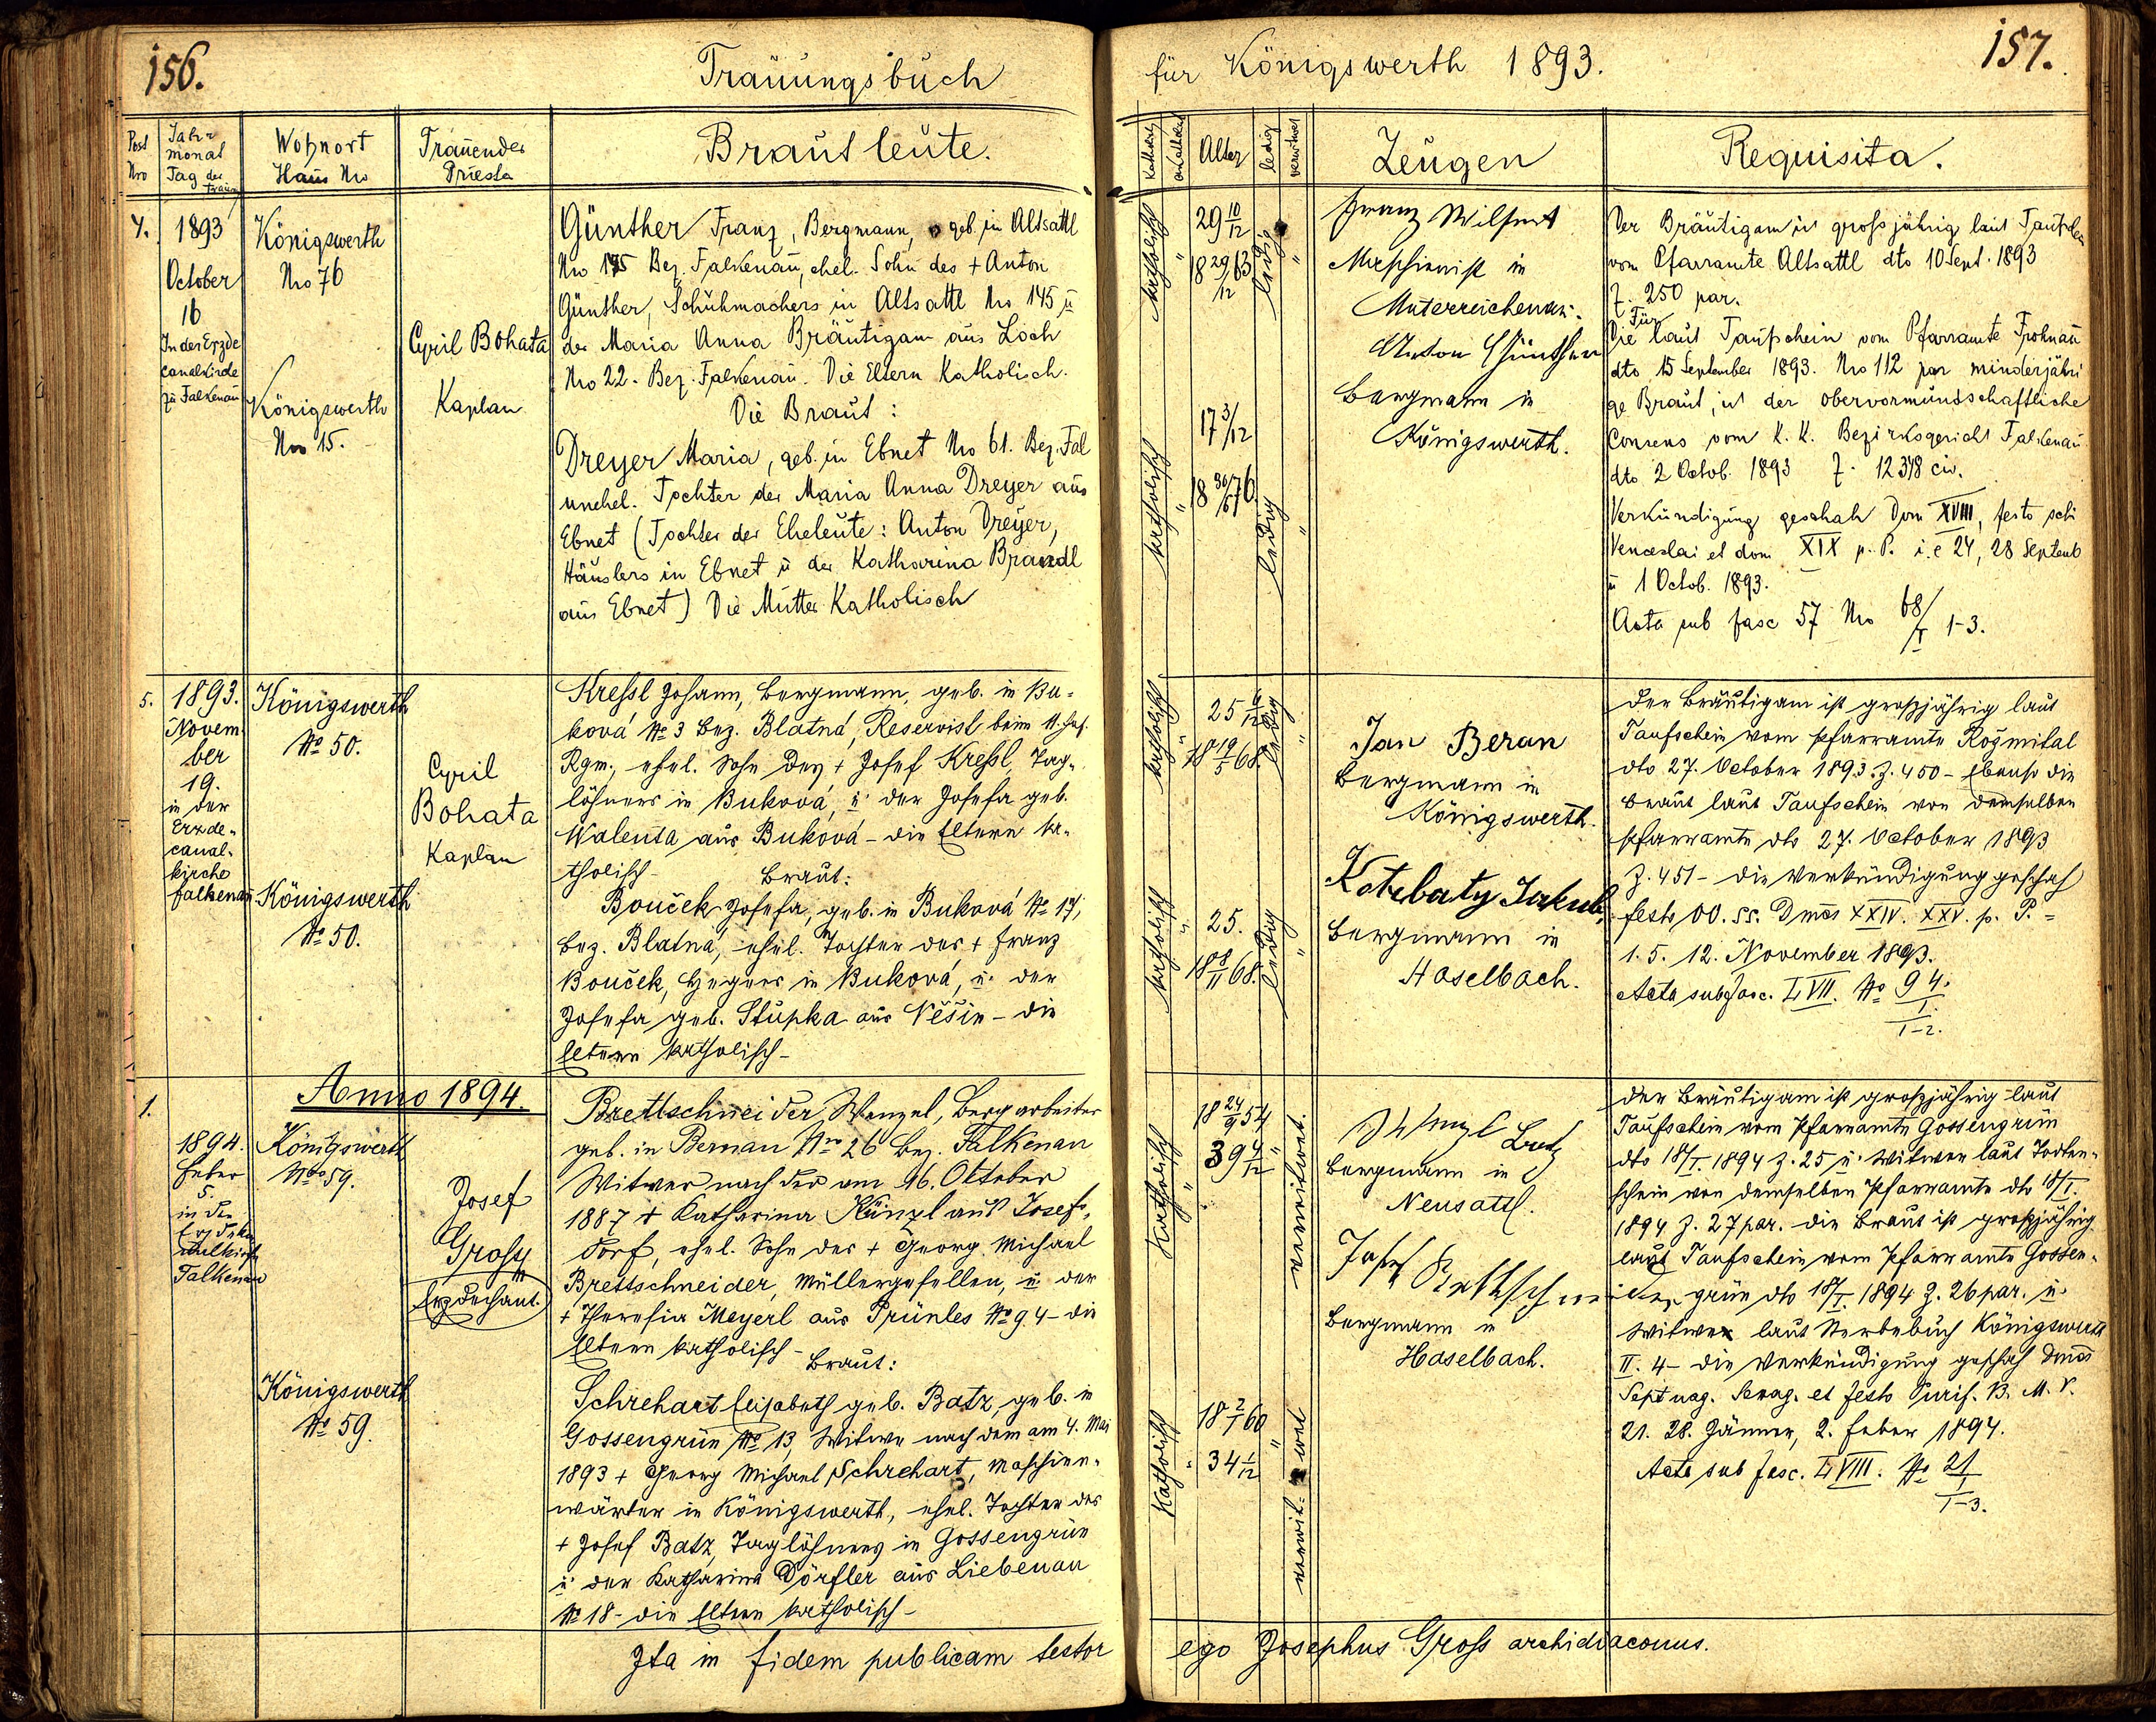 156.
Trauungsbuch
Post Nro
Jahr monat Tag der Trauung
Wohnort Haus Nro
Trauender Priester
Brautleute.
1893
October
16
In der Erzde
canalkirche
zu Falkenau
Königswerth
Nro 76
Königswerth
Nro 15.
Cyril Bohata
Kaplan
Günther Franz, Bergmann, geb. in Altsattl
Nro 145 Bez. Falkenau, ehel. Sohn des + Anton
Günther, Schuhmachers in Altsattl Nro 145 u
der Maria Anna Bräutigam aus Loch
Nro 22. Bez. Falkenau. Die Eltern Katholisch.
Die Braut:
Dreyer Maria, geb. in Ebnet Nro 61. Bez. Fal
unehel. Tochter der Maria Anna Dreyer aus
Ebnet (Tochter der Eheleute: Anton Dreyer,
Häuslers in Ebnet u der Katharina Brandl
aus Ebnet) Die Mutter Katholisch
5.
1893.
Novem
ber
19.
in der
Erzde-
canal-
kirche
Falkenau
Königswerth
No 50.
Königswerth
No 50.
Cyril
Bohata
Kaplan
Kreßl Johann, Bergmann, geb. in Bu-
ková No 3 Bez. Blatná, Reservist beim 11. Inf.
Rgm., ehel. Sohn des + Josef Kreßl, Tag-
löhners in Buková, u. der Josefa geb.
Walenta aus Buková - die Eltern ka-
tholisch -
Braut:
Bouček Josefa, geb. in Buková No 17,
Bez. Blatná, ehel. Tochter des + Franz
Bouček, Hegers in Buková, u. der
Josefa geb. Stupka aus Něšin - die
Eltern katholisch -
Anno 1894.
1.
1894.
Feber
5.
in der
Erzdeka
nalkirche
Falkenau
Königswerth
Nro 59.
Königswerth
No 59.
Josef
Groß
Erzdechant.
Brettschneider Wenzel, Bergarbeiter
geb. in Bernau Nro 26 Bez. Falkenau
Witwer nach der am 16. Oktober
1887 + Katharina Künzl aus Josefs-
dorf, ehel. Sohn des + Georg Michael
Brettschneider, Müllergesellen, u. der
+ Theresia Meyerl aus Prünles No 94 - die
Eltern katholisch -
Braut:
Schrehart Elisabeth geb. Batz, geb. in
Gossengrün No 13, Witwe nach dem am 4. Mai
1893 + Georg Michael Schrehart, Maschinen-
wärter in Königswerth, ehel. Tochter des
+ Josef Batz, Taglöhners in Gossengrün
u. der Katharina Dörfler aus Liebenau
No 18 - die Eltern katholisch -
Ita in fidem publicam testor
für Königswerth 1893.
157.
Katholisch
Alter
ledig
verwitwet
Zeugen
Requisita.
katholisch
29 10/12
18 29/12 63
ledig
katholisch
17 3/12
18 30/6 76
ledig
Franz Wilfert
Maschinist in
Unterreichenau.
Anton Günther
Bergmann in
Königswerth.
Der Bräutigam ist großjährig laut Taufschein
vom Pfarramte Altsattl dto 10 Sept. 1893
Z. 250 par.
Für
Die laut Taufschein vom Pfarramte Frohnau
dto 15 September 1893. Nro 112 par minderjähri
ge Braut, ist der obervormundschaftliche
Consens vom K. K. Bezirksgericht Falkenau
dto 2 Octob. 1893 Z. 12348 civ.
Verkündigung geschah Dom XVIII, festo scti
Venceslai et dom XIX p. P. i. e 24, 28 Septemb
u 1 Octob. 1893.
Acta sub fasc 57 Nro 68/I 1-3.
katholisch
25 6/12
18 19/5 68.
ledig
katholisch
25.
18 8/11 68.
ledig
Jan Beran
Bergmann in
Königswerth.
Kotrbaty Jakub
Bergmann in
Haselbach.
Der Bräutigam ist großjährig laut
Taufschein vom Pfarramte Rožmital
dto 27. October 1893. Z. 450 - Ebenso die
Braut laut Taufschein von demselben
Pfarramte dto 27. October 1893
Z. 451 - die Verkündigung geschah
festo OO. SS. Dmcs XXIV. XXV. p. P. =
1. 5. 12. November 1893.
Acta sub fasc. LVII. No 94.
I.
1-2.
Katholisch
18 24/9 54
39 4/12
verwitwet.
Katholisch
18 2/1 60
34 1/12
verwit-wet
Wenzl Lutz
Bergmann in
Neusattl.
Josef Brettschneider
Bergmann in
Haselbach.
Der Bräutigam ist großjährig laut
Taufschein vom Pfarramte Gossengrün
dto 18/I. 1894 Z. 25 u. Witwer laut Todten-
schein von demselben Pfarramte dto 18/I.
1894 Z. 27 par. die Braut ist großjährig
laut Taufschein vom Pfarramte Gossen-
grün dto 18/I. 1894 Z. 26 par. u.
Witwe laut Sterbebuch Königswerth
II. 4 - die Verkündigung geschah Dmcs
Septuag. Sexag. et festo Purif. B. M. V.
21. 28. Jänner, 2. Feber 1894.
Acta sub fasc. LVIII. No 21
I
1-3.
ego Josephus Groß archidiaconus.